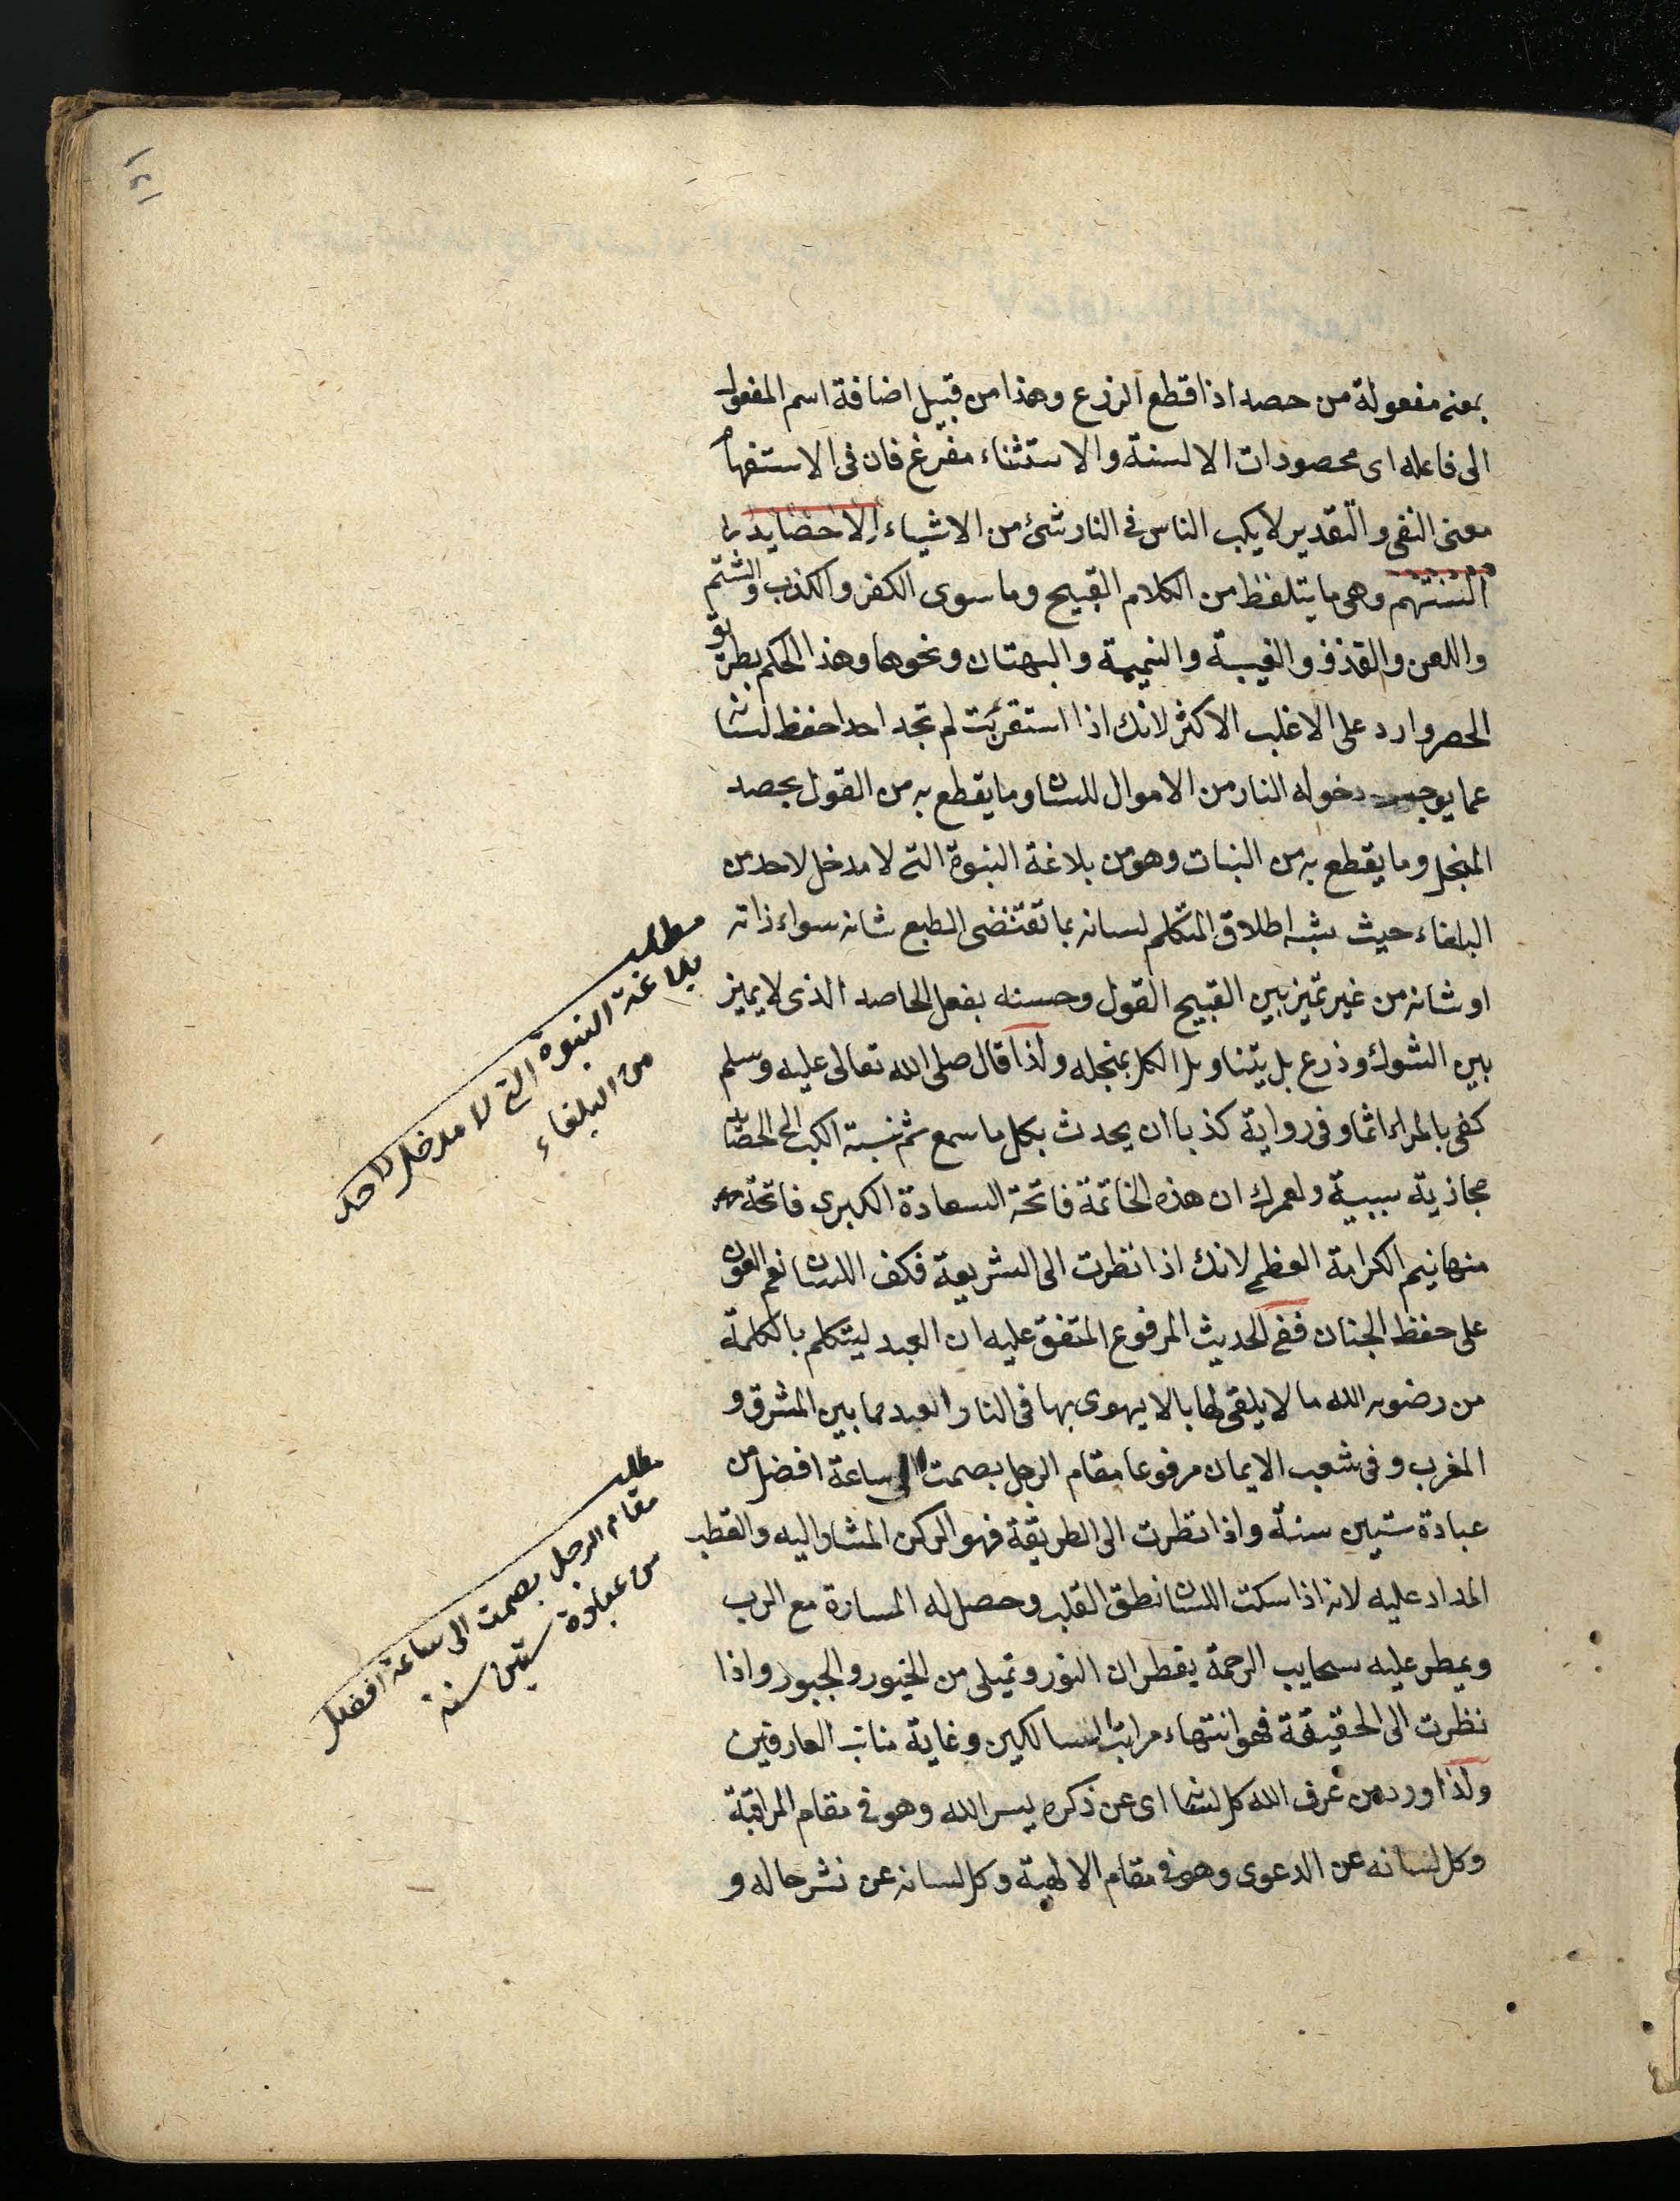 ١٥١
بمعنى مفعولة من حصد اذا قطع الزرع وهذا من قبيل اضافة اسم المفعول
الى فاعله اى محصودات الالسنة والاستثناء مفرغ فان فى الاستفهام
معنى النفى والتقدير لا يكب الناس فى النار شئ من الاشياء الا حصايد
السنتهم وهى ما يتلفظ من الكلام القبيح وما سوى الكفر والكذب والشتم
واللعن والقذف والغيبة والنميمة والبهتان ونحوها وهذا الحكم بطريق
الحصر وارد على الاغلب الاكثر لانك اذا استقريت لم تجد احدا حفظ لسانه
عما يوجب دخوله النار من الاموال للسان وما يقطع به من القول بحصد
المنجل وما يقطع به من النبات وهو من بلاغة النبوة التى لا مدخل لاحد من
البلغاء حيث شبه اطلاق المتكلم لسانه بما تقتضى الطبع شانه سواء ذاته
او شانه من غير تميز بين القبيح القول وحسنه بفعل الحاصد الذى لا يميز
بين الشوك وذرع بل يتناول الكل بمنجله ولذا قال صلى الله تعالى عليه وسلم
كفى بالمراء اثما وفى رواية كذبا ان يحدث بكل ما سمع ثم نسبة الكب الى الحصايد
مجازية سببية ولعمرك ان هذه الخاتمة فاتحة السعادة الكبرى فاتحة
منها نيم الكرامة العظمى لانك اذا نظرت الى الشريعة فكف اللسان نعم العون
على حفظ الجنان ففى الحديث المرفوع المتفق عليه ان العبد ليتكلم بالكلمة
من رضوبه الله ما لا يلقى لها بالا يهوى بها فى النار العبد مما بين المشرق و
المغرب وفى شعب الايمان مرفوعا مقام الرجل بصمت الى ساعة افضل من
عبادة ستين سنة واذا نظرت الى الطريقة فهو الركن المشار اليه والقطب
المداد عليه لانه اذا سكت اللسان نطق القلب وحصل له المسارة مع الرب
ويمطر عليه سحايب الرحمة يقطران النور وتميلى من الخيور والجبور واذا
نظرت الى الحقيقة فهو انتهاء مراتب السالكين وغاية العارفين
ولذا ورد من عرف الله كل لسانه اى عن ذكره بسر الله وهو فى مقام المراقبة
وكل لسانه عن الدعوى وهو فى مقام الالهية وكل لسانه عن نشر حاله و
مطلب
بلاغة النبوة التى لا مدخل لاحد
من البلغاء
مطلب
مقام الرجل بصمت الى ساعة افضل
من عبادة ستين سنة